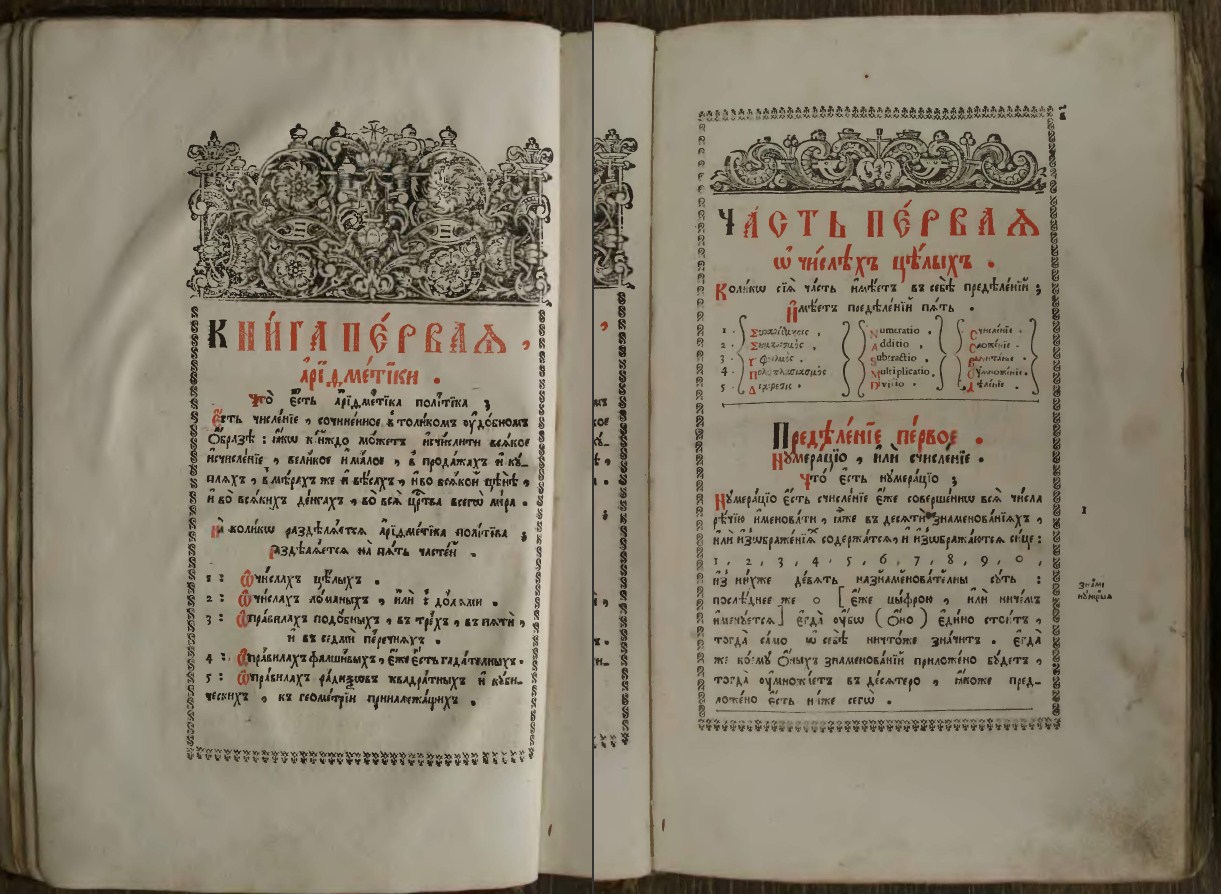 КНИ́ГА ПЕ́РВАЯ,
А҆РІѲМЕ́ТІКИ .
Что̀ є҆́сть а҆рїѳме́тїка полі́тїка ;
Є҆́сть числе́нїе , сочине́нное в̾ толи́комъ ᲂу҆до́бномъ
ѻ҆́бразѣ : ꙗ҆́кѡ ки́йждо мо́жетъ и҆счи́слити всѧ́кое
и҆счисле́нїе , вели́кое и҆ ма́лое , в̾ прода́жахъ и҆ кꙋ́-
плѧхъ , в̾ мѣ́рахъ же и҆ вѣ́сахъ , и҆ во всѧ́кой цѣнѣ̀ ,
и҆ во̀ всѧ́кихъ де́нгахъ , во всѧ̀ црⷭ҇тва всегѡ̀ мі́ра .
На̀ коли́кѡ раздѣлѧ́етсѧ а҆рїѳме́тїка полі́тїка ;
Раздѣлѧ́етсѧ на̀ пѧ́ть часте́й .
1 : Ѡ҆ чи́слахъ цѣ́лыхъ .
2 : Ѡ҆ чи́слахъ ло́маныхъ , и҆лѝ с̾ до́лѧми .
3 : Ѡ҆ пра́вилахъ подо́бныхъ , в̾ тре́хъ , в̾ пѧтѝ ,
и҆ в̾ седмѝ пе́речнѧхъ .
4 : Ѡ҆ пра́вилахъ фалши́выхъ , є҆́же є҆́сть гада́телныхъ .
5 : Ѡ҆ пра́вилахъ ра́диѯѡвъ квадра́тныхъ и҆ кꙋби́-
ческихъ , къ геоме́трїи принадлежа́щихъ .
ЧА́СТЬ ПЕ́РВАЯ
ѡ҆ чи́слѣхъ цѣ́лыхъ .
Коли́кѡ сїѧ̀ ча́сть и҆мѣ́етъ въ себѣ̀ предѣле́нїй ;
И҆мѣ́етъ предѣле́нїй пѧ́ть .
1 . Numeratio . Счисле́нїе .
2 . Additio . Сложе́нїе .
3 . Subtractio . Вычита́нїе .
4 . Multiplicatio . Оумноже́нїе .
5 . Divisio . Дѣле́нїе .
Предѣле́нїе пе́рвое .
Нꙋмера́цїо , и҆лѝ счисле́нїе .
Что̀ є҆́сть нꙋмера́цїо ;
Нꙋмера́цїо є҆́сть счисле́нїе є҆́же соверше́ннѡ всѧ̀ чи́сла
рѣ́чїю и҆менова́ти , ꙗ҆̀же въ десѧтѝ знаменова́нїѧхъ ,
и҆лѝ и҆з̾ѡбраже́нїѧхъ содержа́тсѧ , и҆ и҆з̾ѡбража́ютсѧ си́це :
1 , 2 , 3 , 4 , 5 , 6 , 7 , 8 , 9 , 0 ,
и҆з̾ ни́хже де́вѧть назнаменова́телны сꙋ́ть :
послѣ́днее же 0 [ є҆́же цы́фрою , и҆лѝ ниче́мъ
и҆менꙋ́етсѧ ] є҆гда̀ ᲂу҆́бѡ ( ѻ҆́но ) є҆ди́но стои́тъ ,
тогда̀ само̀ ѡ҆ себѣ̀ ничто́же зна́читъ . є҆гда́
же ко́емꙋ ѻ҆́ныхъ знаменова́нїй приложе́но бꙋ́детъ ,
тогда̀ ᲂу҆множа́етъ въ де́сѧтеро , ꙗ҆́коже пред-
ложе́но є҆́сть ни́же сегѡ̀ .
1